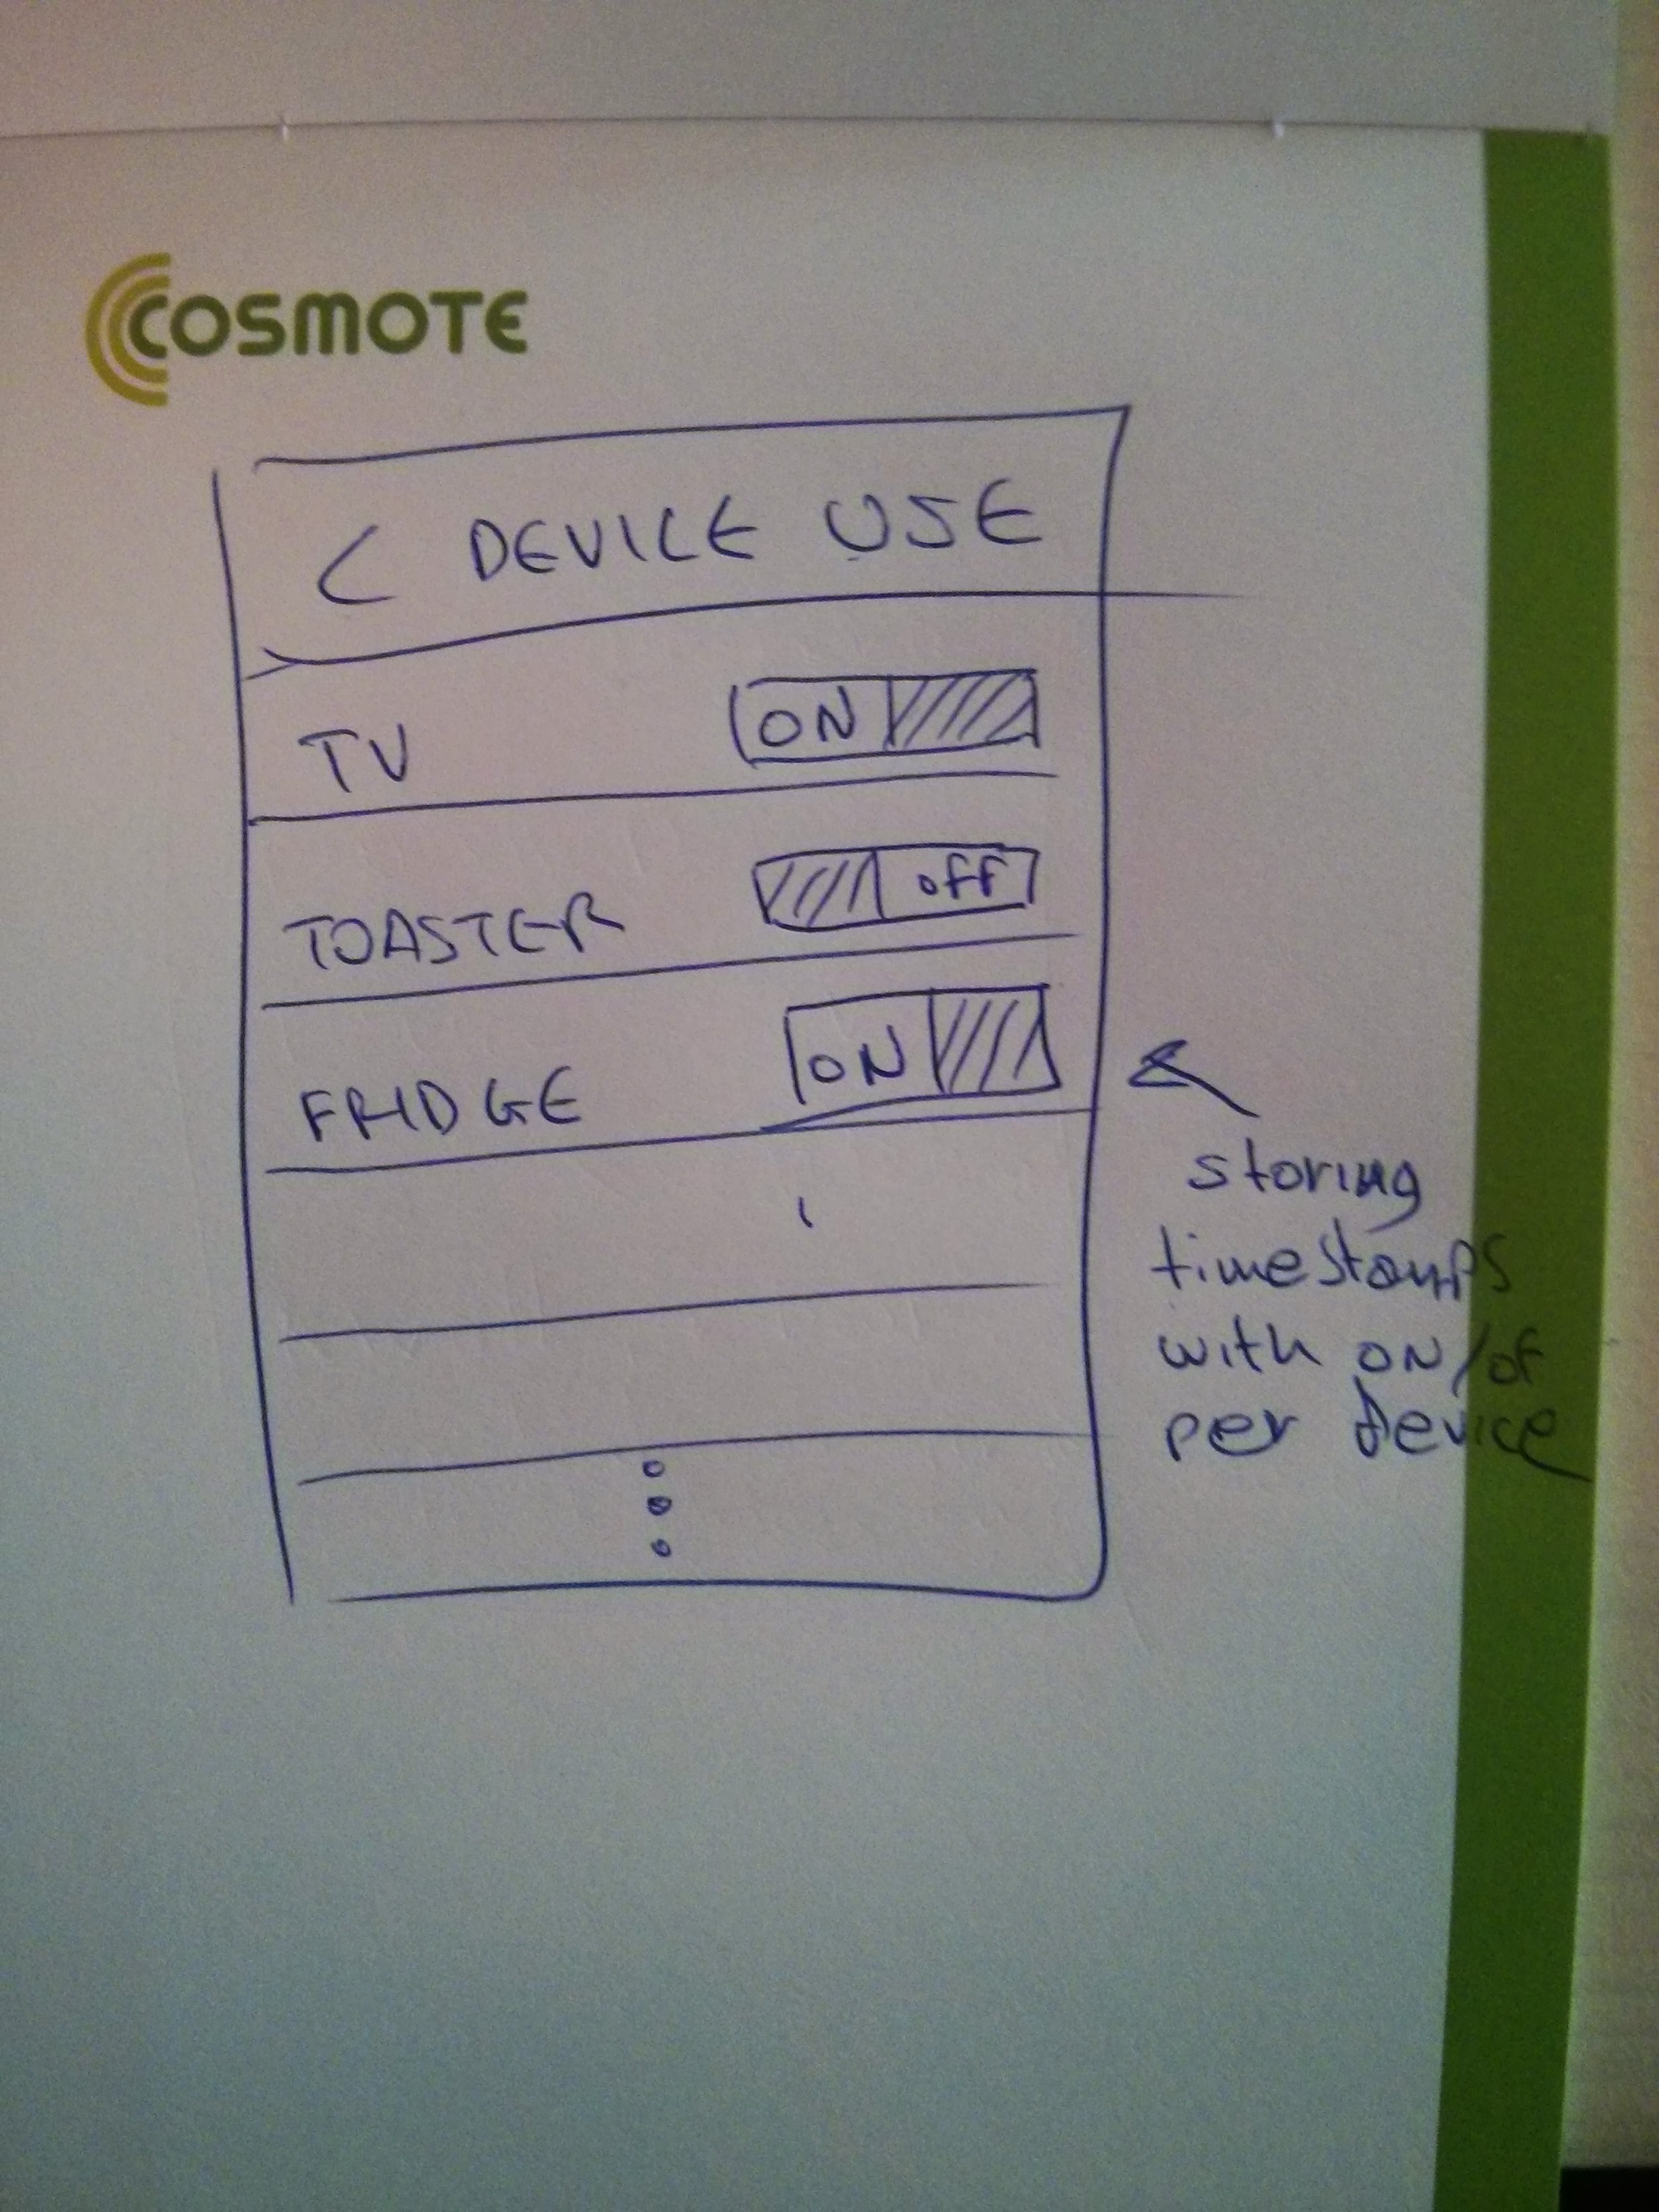 COSMOTE
< DEVICE USE
TV ON
TOASTER OFF
FRIDGE ON
storing
timestamps
with ON/OF
per Device